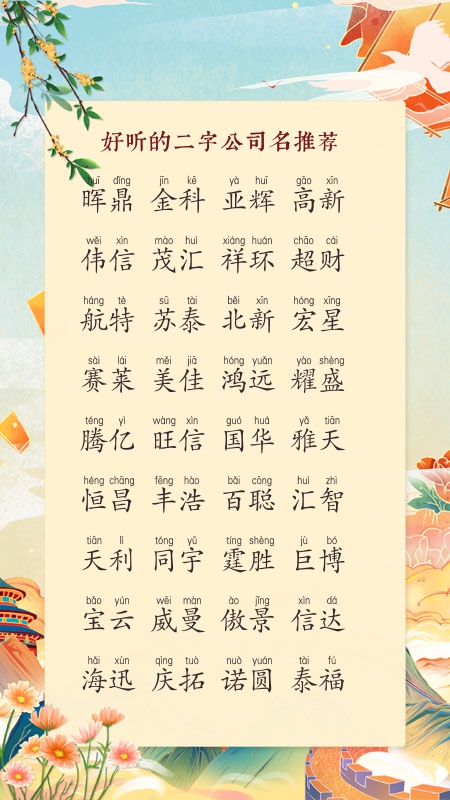 好听的二字公司名推荐
huī dǐng jīn kē yà huī gāo xīn
晖鼎 金科 亚辉 高新
wěi xìn mào huì xiáng huán chāo cái
伟信 茂汇 祥环 超财
háng tè sū tài běi xīn hóng xīng
航特 苏泰 北新 宏星
sài lái měi jiā hóng yuǎn yào shèng
赛莱 美佳 鸿远 耀盛
téng yì wàng xìn guó huá yǎ tiān
腾亿 旺信 国华 雅天
héng chāng fēng hào bǎi cōng huì zhì
恒昌 丰浩 百聪 汇智
tiān lì tóng yǔ tíng shèng jù bó
天利 同宇 霆胜 巨博
bǎo yún wēi màn ào jǐng xìn dá
宝云 威曼 傲景 信达
hǎi xùn qìng tuò nuò yuán tài fú
海迅 庆拓 诺圆 泰福